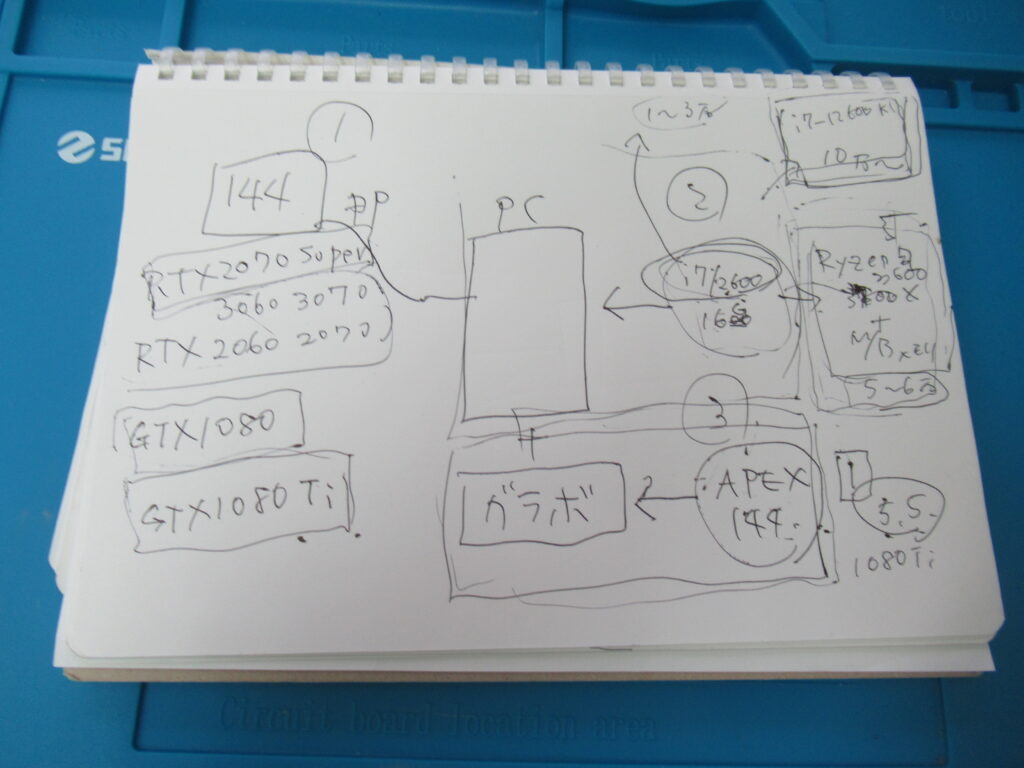 1
144
DP
RTX2070 Super
3060 3070
RTX2060 2070
GTX1080
GTX1080Ti
PC
ガラボ
1〜3万
2
i7/2600
16G
3
?
APEX
144.
i7-12600K
10万〜
Ryzen
3600
X
+
M/B メモリ
5〜6万
5.5
1080Ti
Circuit board location area